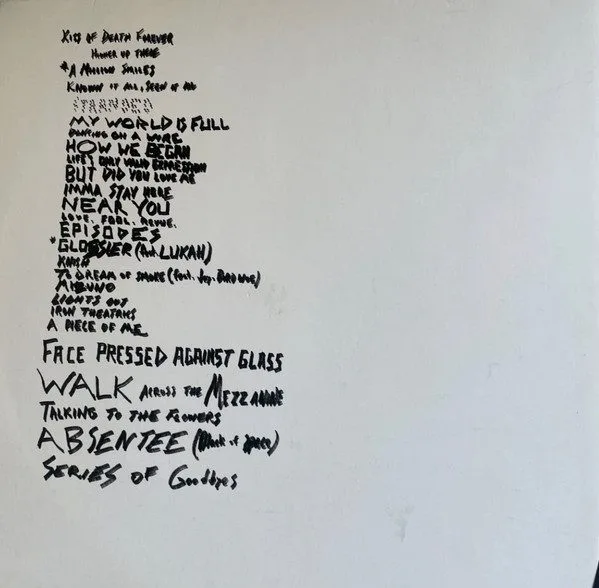 KISS OF DEATH FOREVER
HIGHER UP THERE
*A MILLION SMILES
KNOWN IT ALL, SEEN IT ALL
STRANDED
MY WORLD IS FULL
DANCING ON A WIRE
HOW WE BEGAN
LIFE'S ONLY VALID EXPRESSION
BUT DID YOU LOVE ME
IMMA STAY HERE
NEAR YOU
LOVE. FOOL. REVUE.
EPISODES
*GLOSSIER (feat. LUKAH)
TO DREAM OF SMOKE (feat. Jay BROWN)
MIZUNO
LIGHTS OUT
IRON THEATRICS
A PIECE OF ME
FACE PRESSED AGAINST GLASS
WALK ACROSS THE MEZZANINE
TALKING TO THE FLOWERS
ABSENTEE (Mark of space)
SERIES OF Goodbyes